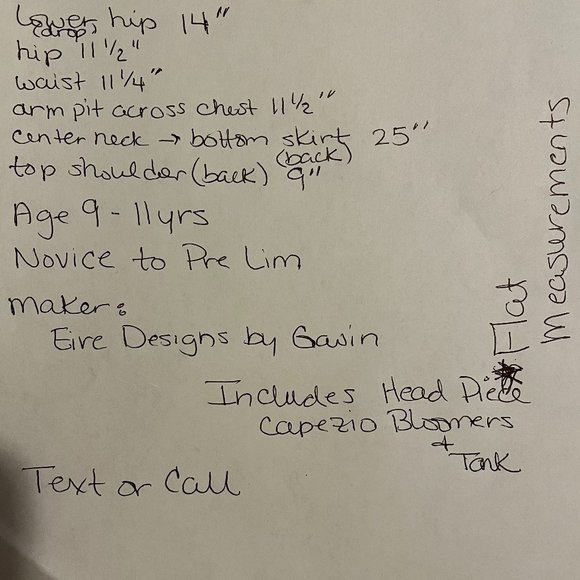 Lower hip 14"
(drop)
hip 11 1/2"
waist 11 1/4"
arm pit across chest 11 1/2"
center neck → bottom skirt 25"
(back)
top shoulder (back) 9"
Age 9 - 11 yrs
Novice to Pre Lim
maker:
Eire Designs by Gavin
Includes Head Piece
Capezio Bloomers
+
Tank
Text or Call
* Flat
Measurements